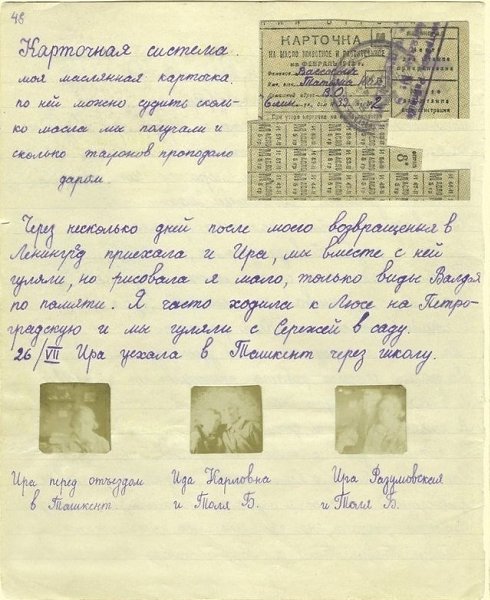 48
Карточная система.
моя маслянная карточка,
по ней можно судить сколь-
ко масла мы получали и
сколько талонов пропадало
даром.
КАРТОЧКА
НА МАСЛО ЖИВОТНОЕ И РАСТИТЕЛЬНОЕ
НА ФЕВРАЛЬ
Татьяна
В.О.
8
Через несколько дней после моего возвращения в
Ленинград приехала и Ира, мы вместе с ней
гуляли, но рисовала я мало, только виды Валдая
по памяти. Я часто ходила к Люсе на Петро-
градскую и мы гуляли с Сережей в саду.
26/VII Ира уехала в Ташкент через школу.
Ира перед отъездом
в Ташкент.
Ида Карловна
и Толя Б.
Ира Разумовская
и Толя Б.